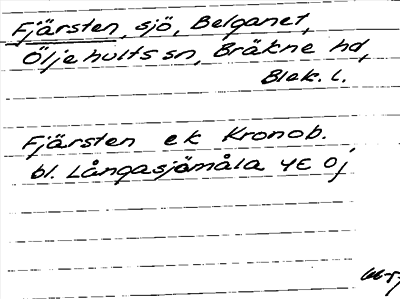 Fjärsten, sjö, Belganet,
Öljehults sn, Bräkne hd,
Blek. l.
Fjärsten ek Kronob.
bl. Långasjömåla 4E 0j